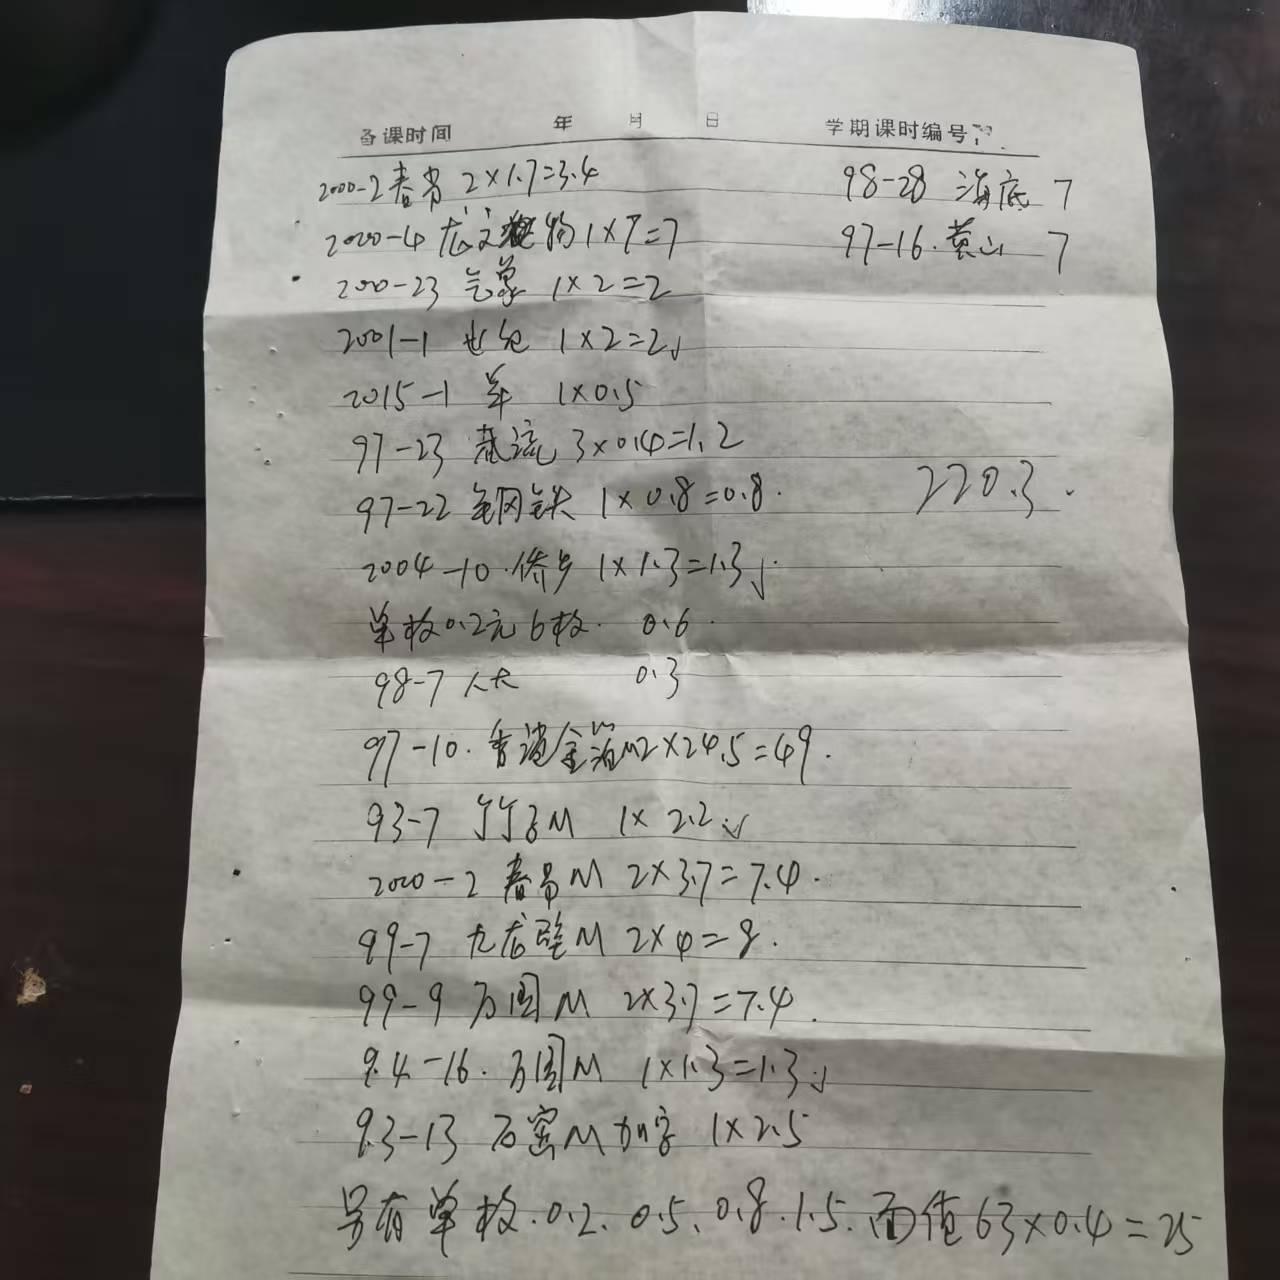 备课时间 年 月 日 学期课时编号
2000-2 春节 2×1.7=3.4 98-28 海底 7
2000-4 龙文物 1×7=7 97-16. 黄山 7
200-23 气象 1×2=2
2001-1 世纪 1×2=2√
2015-1 羊 1×0.5
97-23 截流 3×0.4=1.2
97-22 钢铁 1×0.8=0.8. 220.3.
2004-10. 侨乡 1×1.3=1.3√.
单枚0.2元6枚. 0.6.
98-7 人大 0.3
97-10. 香港金箔M 2×24.5=49.
93-7 竹子M 1×2.2√
2000-2 春节M 2×3.7=7.4.
99-7 九龙壁M 2×4=8.
99-9 万国M 2×3.7=7.4.
94-16. 万国M 1×1.3=1.3√
93-13 石窟M加字 1×2.5
另有单枚.0.2.0.5、0.8.1.5.面值63×0.4=25